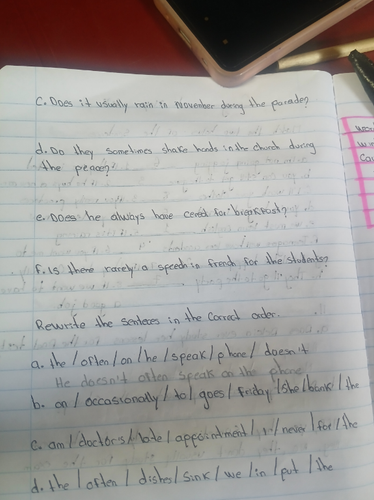 c. Does it usually rain in November during the parade?
d. Do they sometimes shake hands in the church during
the peace?
e. Does he always have cereal for breakfast?
f. Is there rarely a speech in french for the students?
Rewrite the senteces in the correct order.
a. the / often / on / he / speak / phone / doesn't
He doesn't often speak on the phone
b. on / occasionally / to / goes / Friday / she / bank / the
c. am / doctor's / late / appointment / I / never / for / the
d. the / often / dishes / sink / we / in / put / the